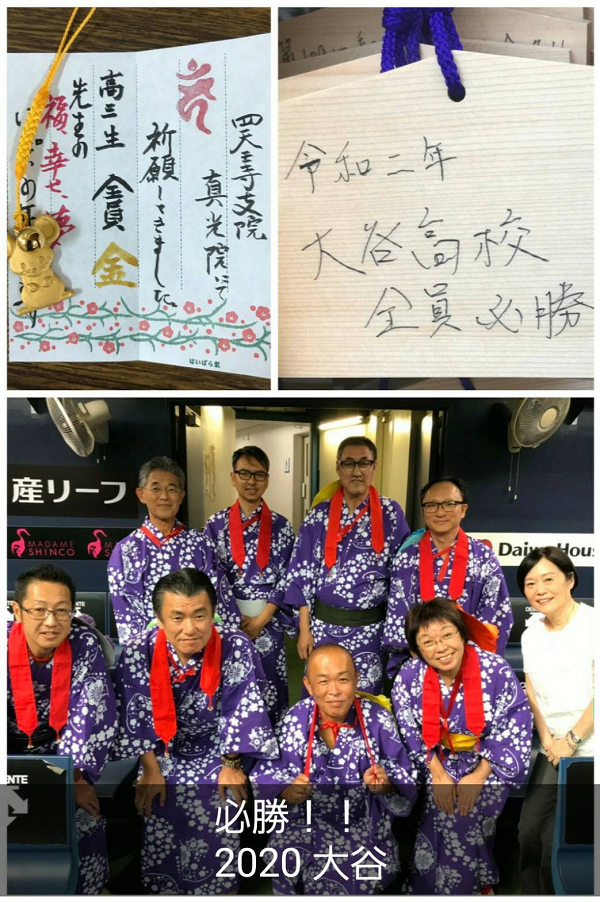 四天王寺支院
真光院にて
祈願してきました。
高三生 全員 金
先生の
福、幸せ、
はいばら製
令和二年
大谷高校
全員必勝
産リーフ
MADAME
SHINCO
MADAME
SHINCO
Daiwa Hous
DENTE
ENTE
必勝！！
2020 大谷